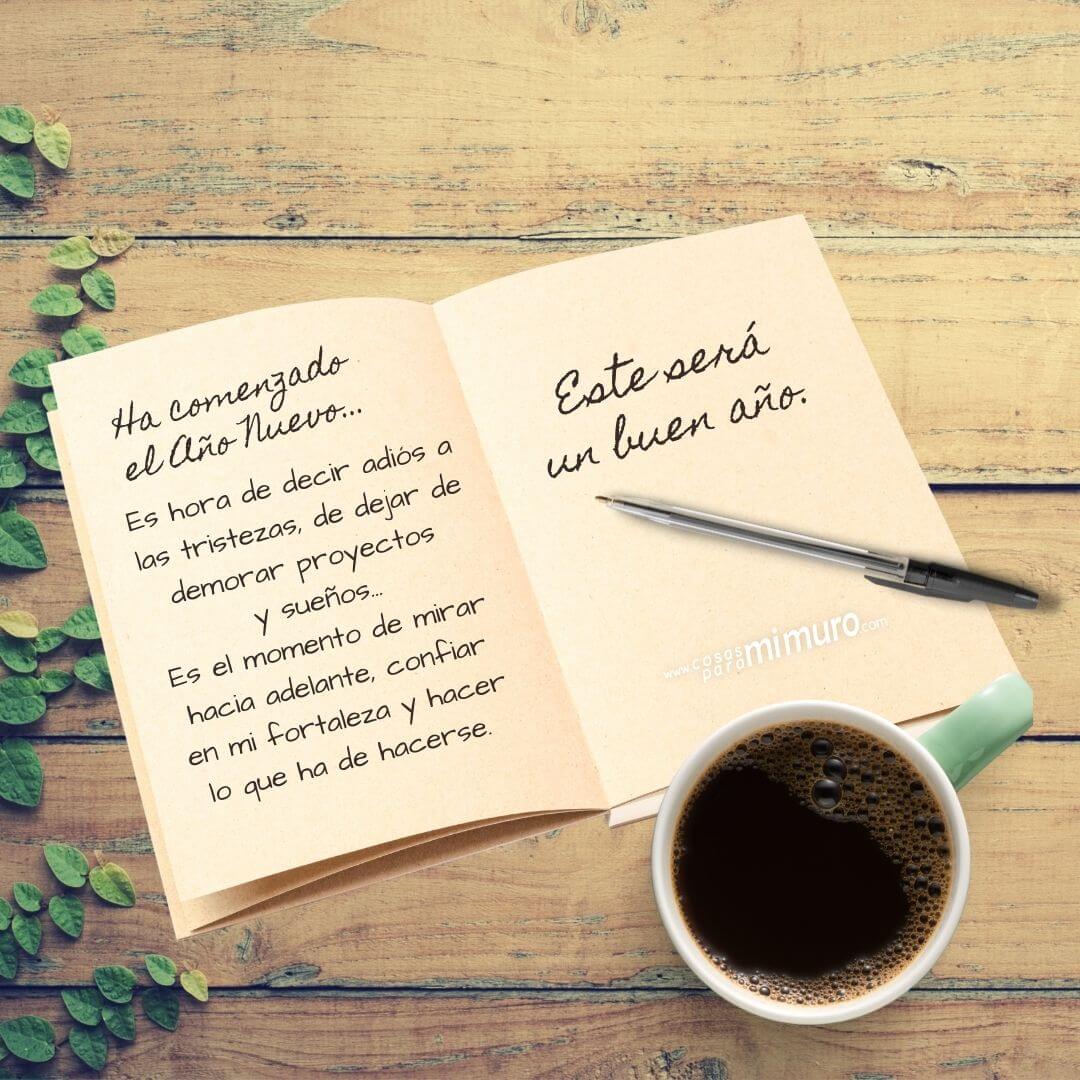 Ha comenzado
el Año Nuevo...
Es hora de decir adiós a
las tristezas, de dejar de
demorar proyectos
y sueños...
Es el momento de mirar
hacia adelante, confiar
en mi fortaleza y hacer
lo que ha de hacerse.
Este será
un buen año.
www.cosas
para mimuro.com